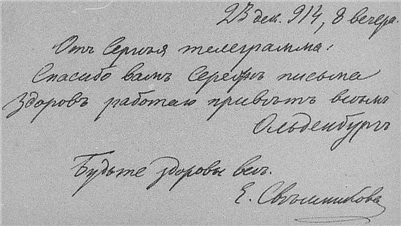 23 дек. 914, 8 вечера.
Отъ Сергѣя телеграмма:
Спасибо вамъ Сереж письма
Здоровъ работаю привѣтъ всѣмъ
Ольденбургъ
Будьте здоровы все.
Е.